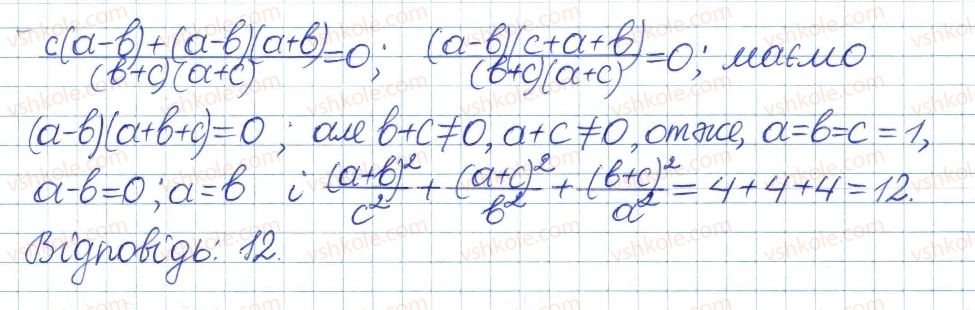 (c(a-b)+(a-b)(a+b))/((b+c)(a+c))=0; ((a-b)(c+a+b))/((b+c)(a+c))=0; маємо
(a-b)(a+b+c)=0; але b+c≠0, a+c≠0, отже, a=b=c=1,
a-b=0; a=b і (a+b)²/c² + (a+c)²/b² + (b+c)²/a² = 4+4+4=12.
Відповідь: 12.